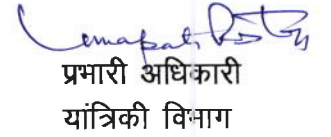 प्रभारी अधिकारी
यांत्रिकी विभाग